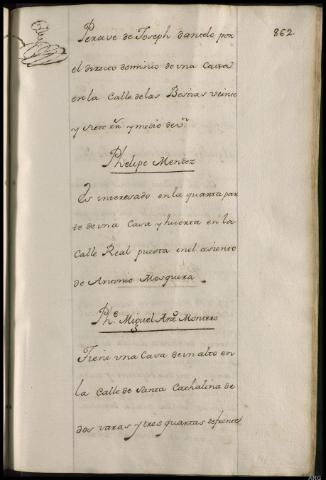 862
Perave de Joseph dandolo por
el directo dominio de una Casa
en la Calle de las Besñas veinte
y siete rs y medio de vn
Phelipe Mentez
Es interesado en la quarta par
te de una Casa y huerta en la
Calle Real puesta en el asiento
de Antonio Mosquera
Phe Miguel Anto Montero
Tiene una Casa de un alto en
la Calle de Santa Cathalina de
dos varas y tres quartas de frente